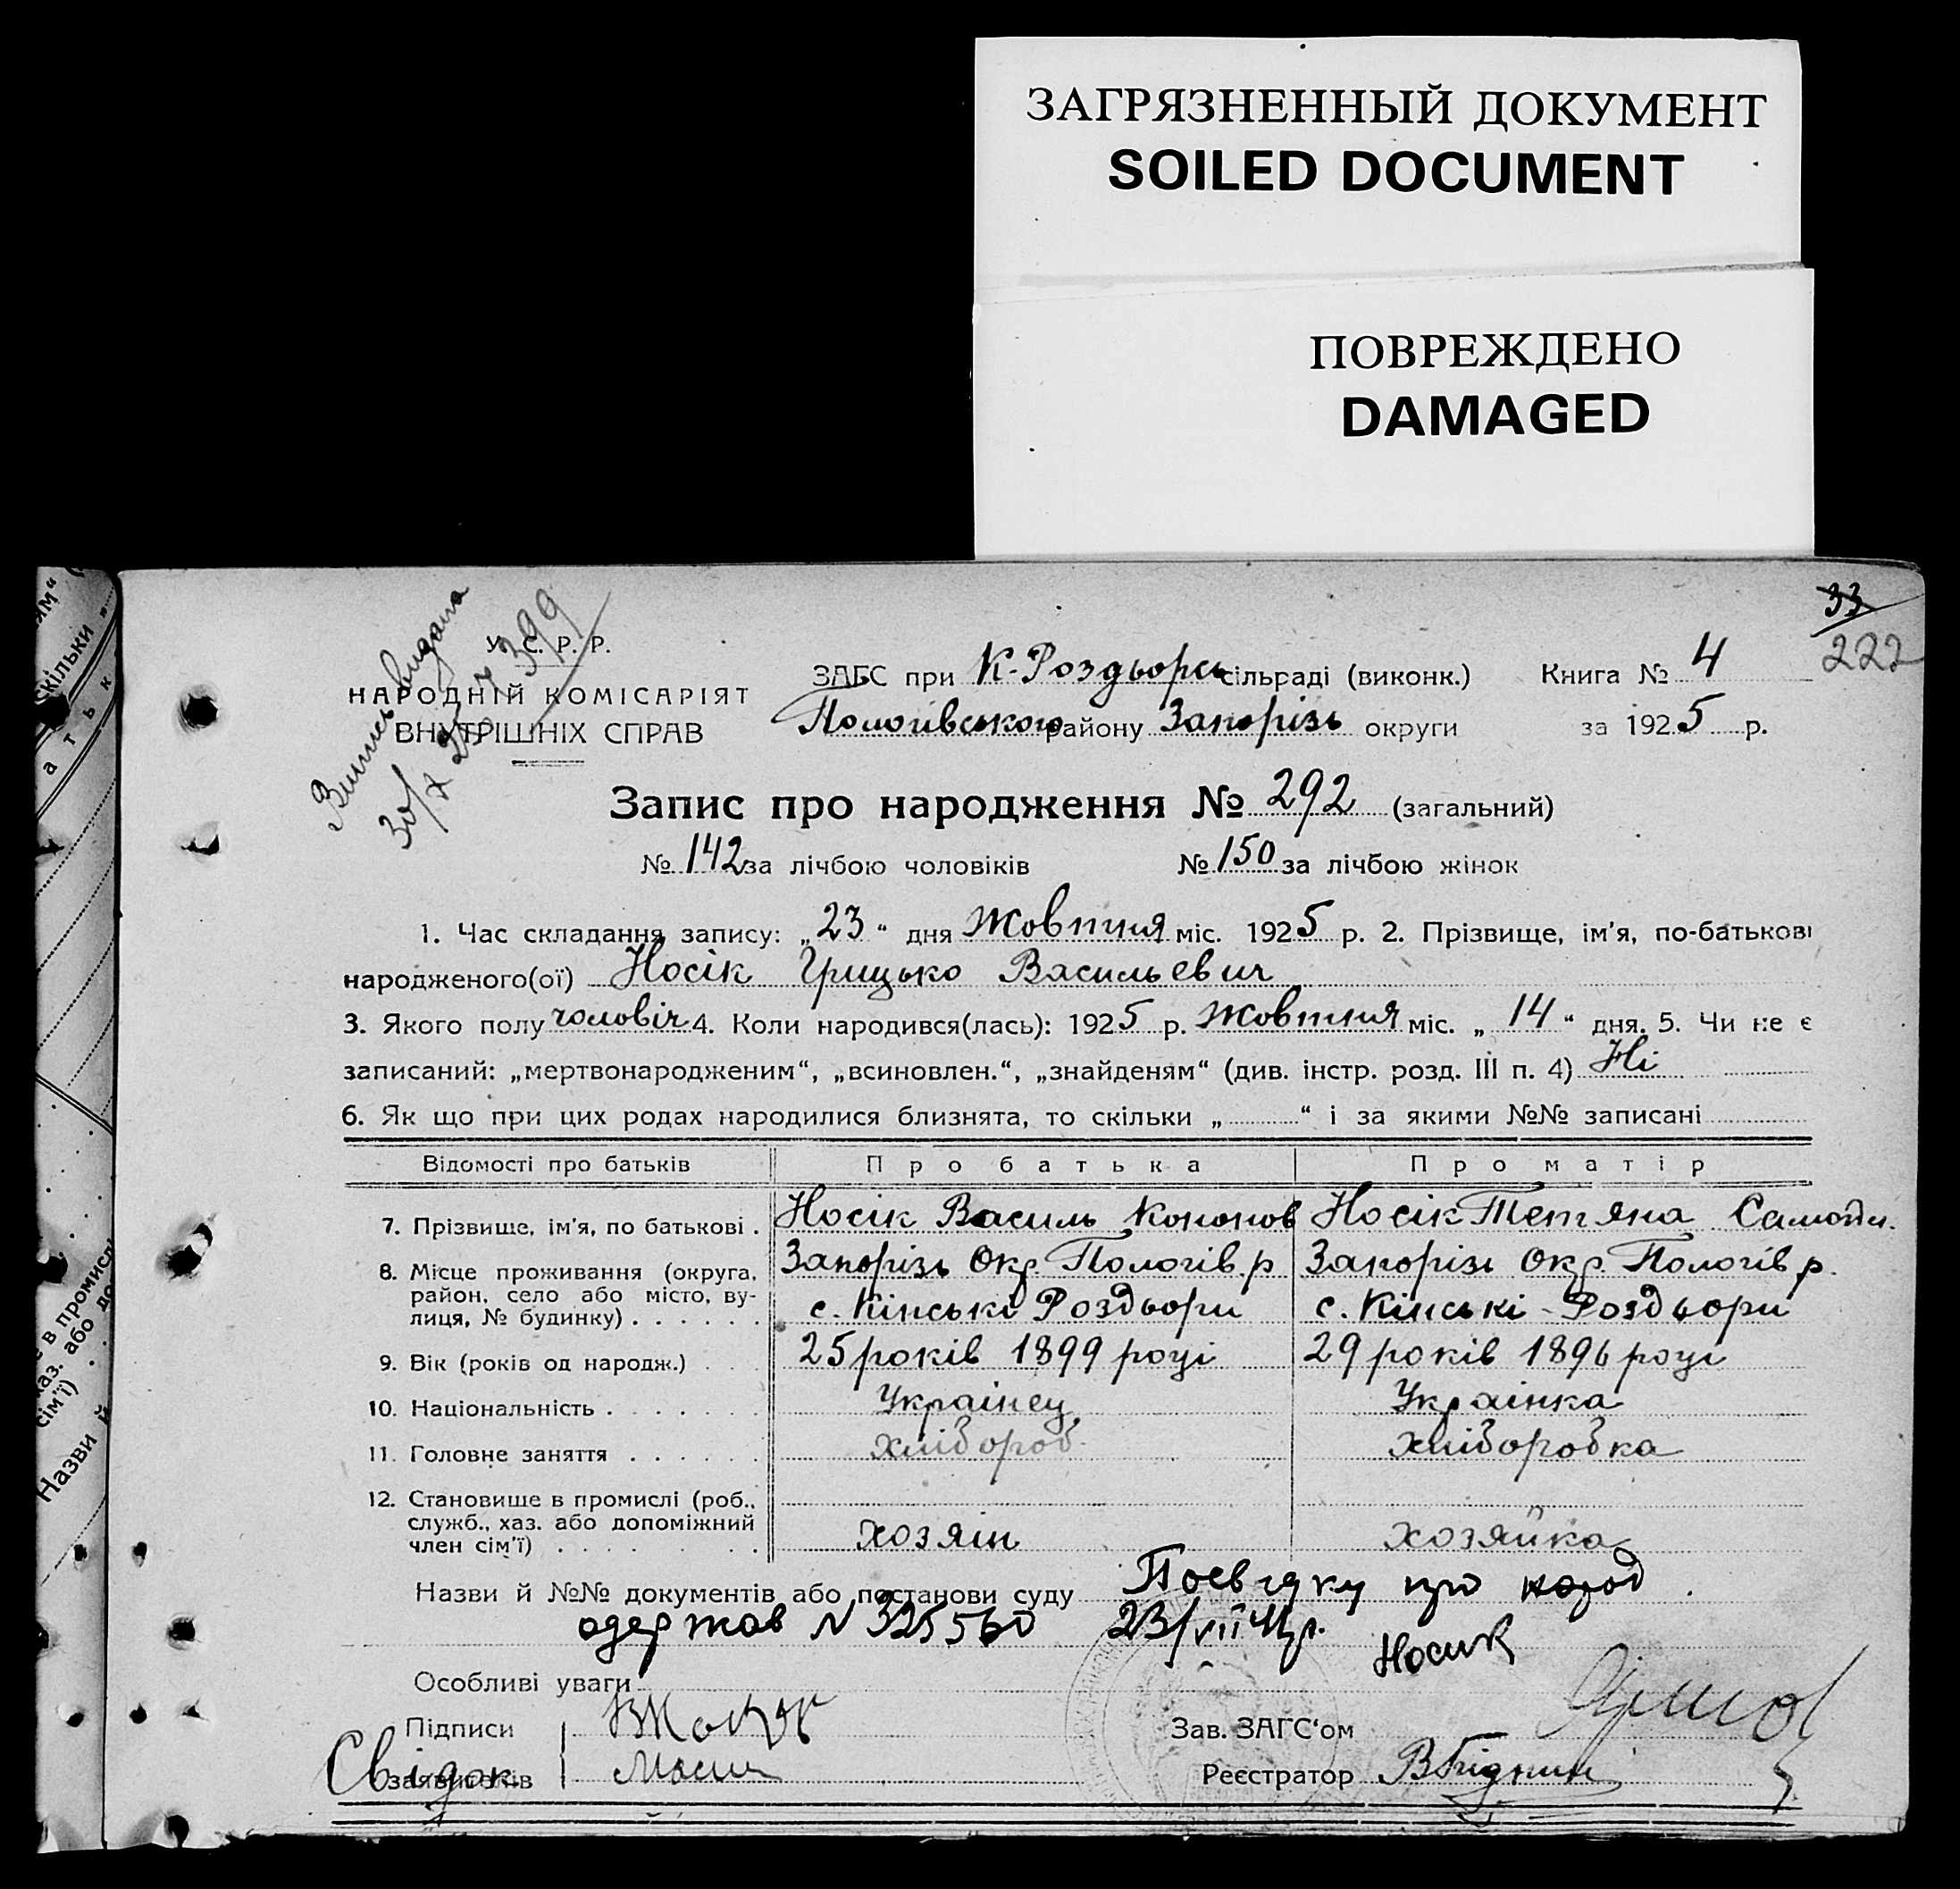 ЗАГРЯЗНЕННЫЙ ДОКУМЕНТ
SOILED DOCUMENT
ПОВРЕЖДЕНО
DAMAGED
33
222
Витяг видана
30/X 25 399
У. С. Р. Р.
НАРОДНІЙ КОМІСАРІЯТ
ВНУТРІШНІХ СПРАВ
ЗАГС при К-Роздьорсь сільраді (виконк.) Книга № 4
Пологівського району Запорізь округи за 1925 р.
Запис про народження № 292 (загальний)
№ 142 за лічбою чоловіків № 150 за лічбою жінок
1. Час складання запису: „23“ дня Жовтня міс. 1925 р. 2. Прізвище, ім'я, по-батькові
народженого(ої) Носік Грицько Васильевич
3. Якого полу чоловіч 4. Коли народився(лась): 1925 р. Жовтня міс. „14“ дня. 5. Чи не є
записаний: „мертвонародженим“, „всиновлен.“, „знайденям“ (див. інстр. розд. III п. 4) Ні
6. Як що при цих родах народилися близнята, то скільки „ “ і за якими №№ записані
Відомості про батьків Про батька Про матір
7. Прізвище, ім'я, по батькові . Носік Василь Кононов Носік Тетяна Самойл.
8. Місце проживання (округа, Запорізь Окр. Пологів. р Запорізь Окр. Пологів р.
район, село або місто, ву-
лиця, № будинку) . . . . . . с. Кінські Роздьори с. Кінські-Роздьори
9. Вік (років од народж.) . . . 25 років 1899 році 29 років 1896 році
10. Національність . . . . . . . Українец Українка
11. Головне заняття . . . . . . хлібороб. хлібороб́ка
12. Становище в промислі (роб.,
служб., хаз. або допоміжний
член сім'ї) . . . . . . . хозяін хозяйка
Назви й №№ документів або постанови суду Посвідку про народ.
одержав N 325560 23/VII 41 р. Носик
Особливі уваги
Підписи
Зав. ЗАГС'ом
Свідок
заявителів
Реєстратор